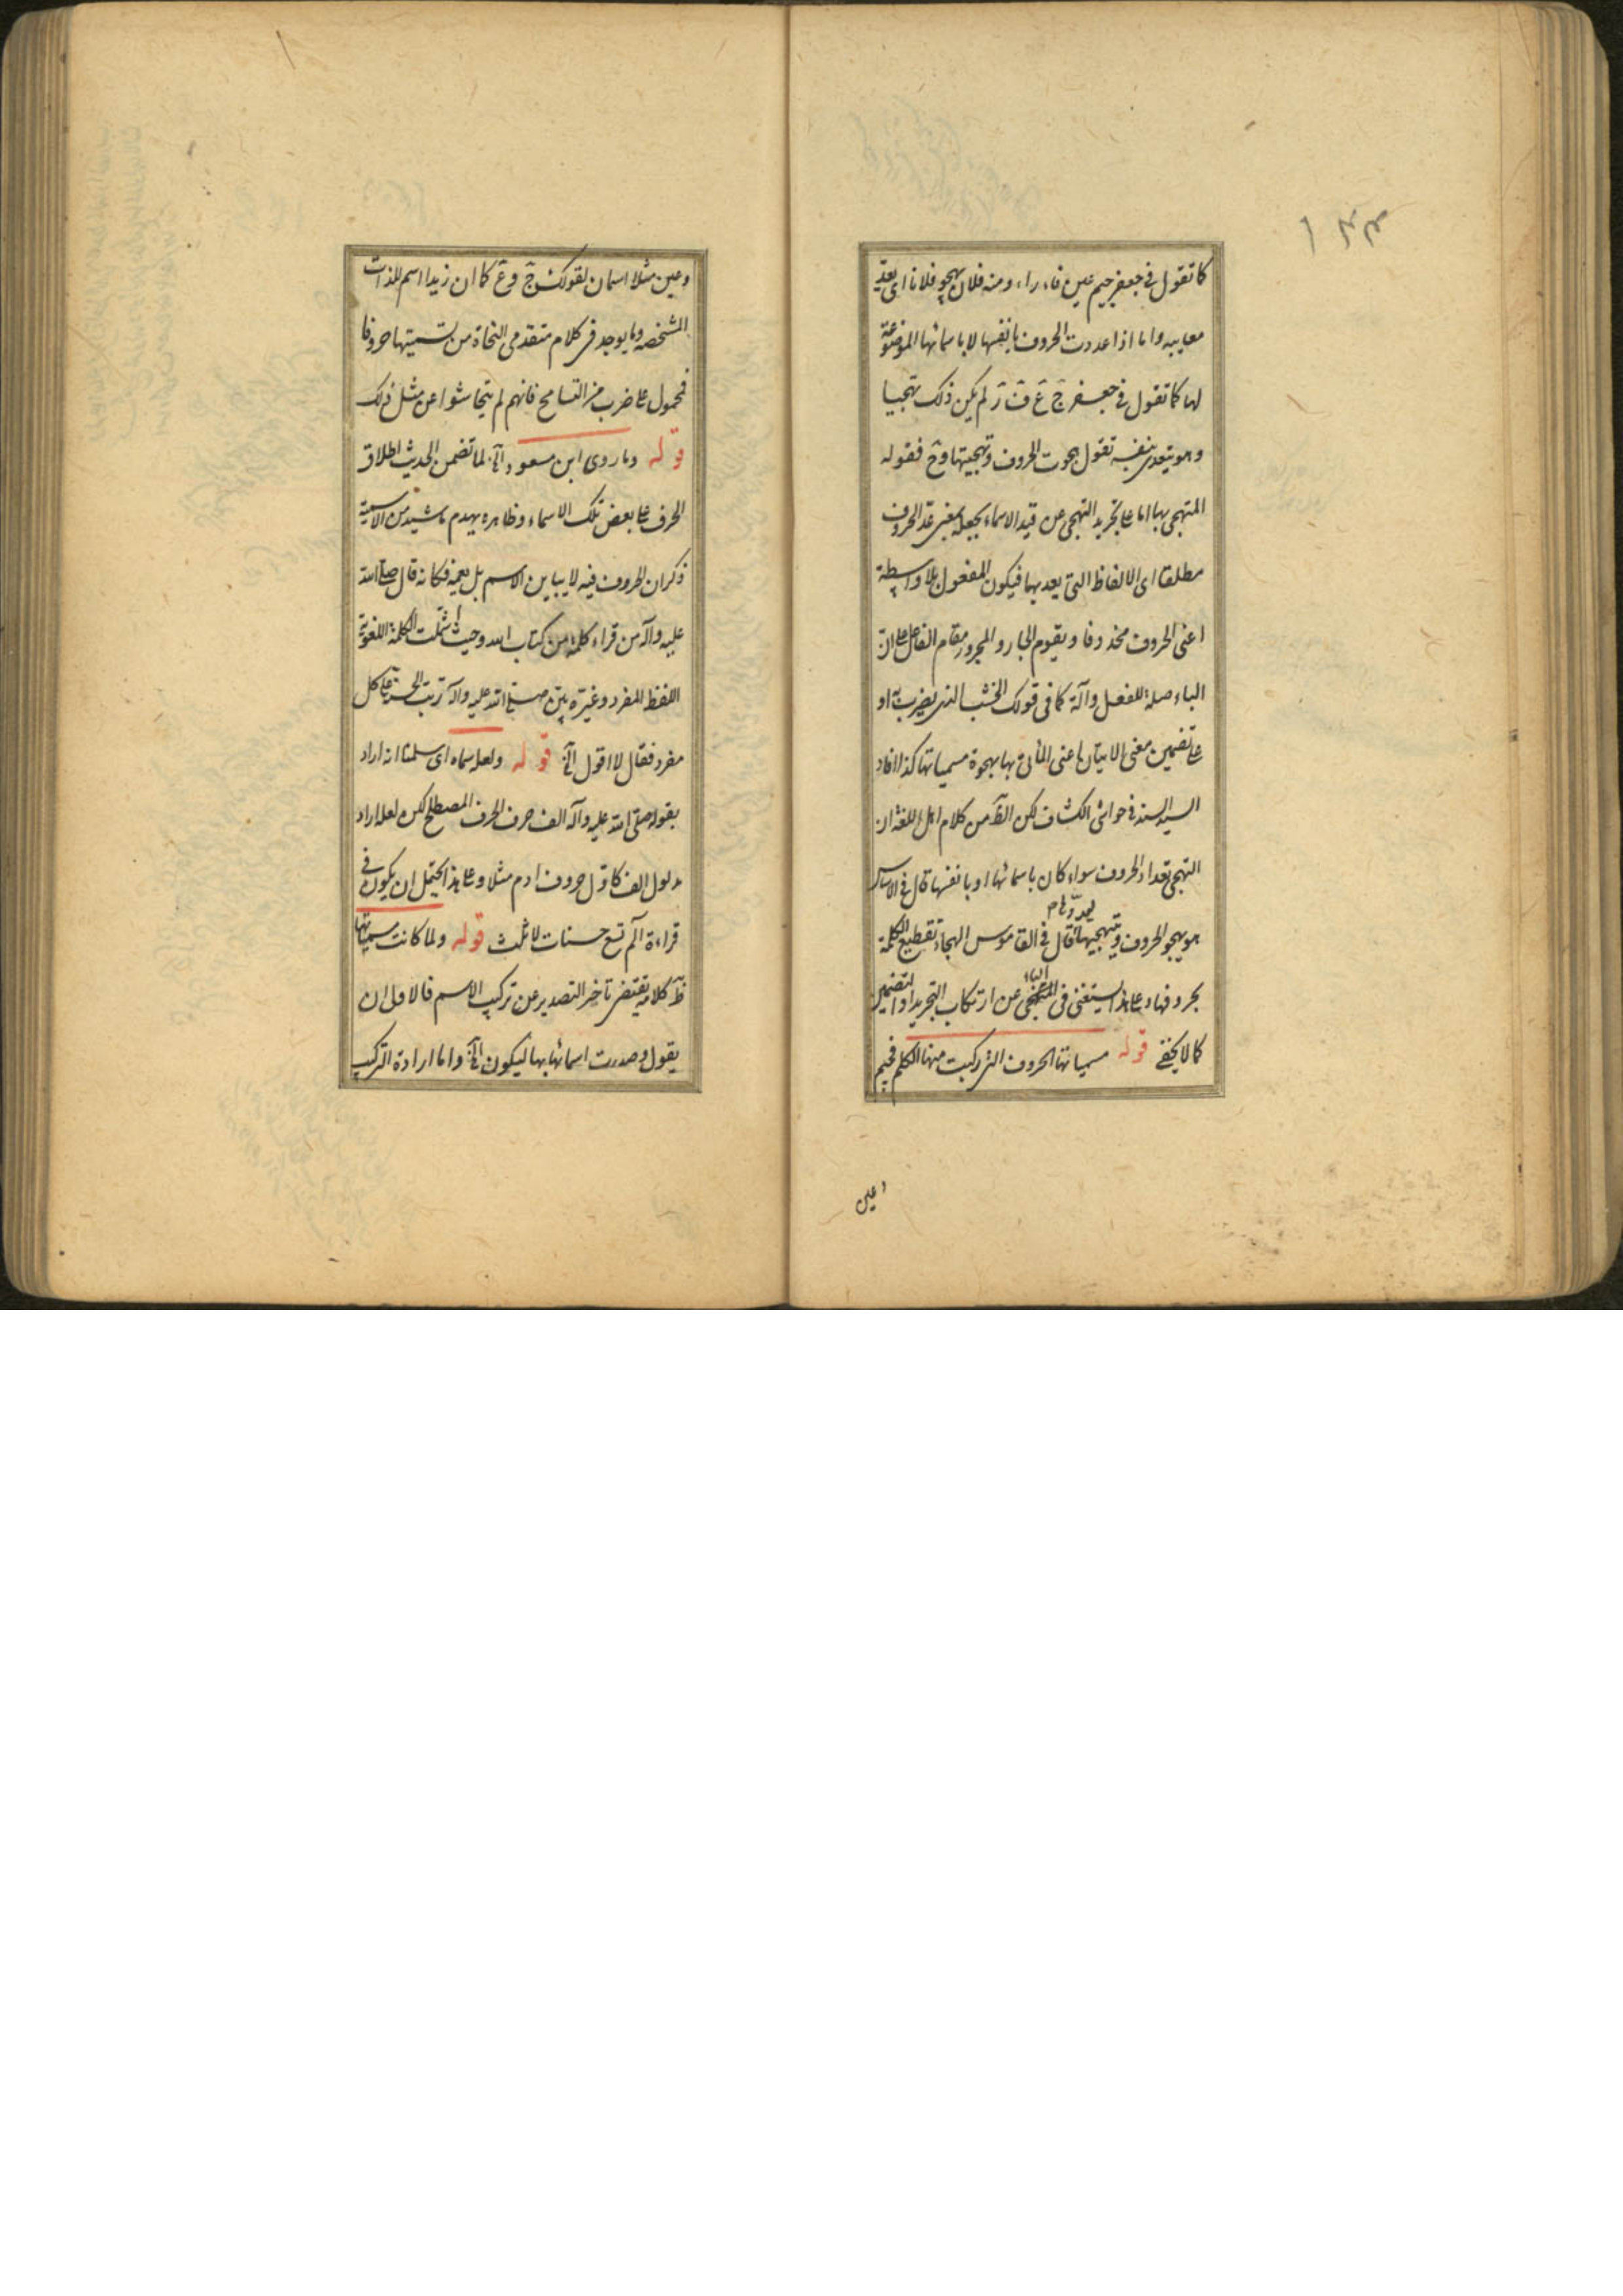 كما تقول في جعفر جيم عين فاء راء ومنه فلان يهجو فلانا اى يعدّ
معايبه واما اذا عددت الحروف بانفسها لا باسمائها الموضوعة
لها كما تقول في جعفر جَ عَ فَ رَ لم يكن ذلك تهجيا
وهو يتعدى بنفسه تقول هجوت الحروف وتهجيتها وح فقوله
المتهجى بها اما على تجريد التهجى عن قيد الاسماء بجعله بمعنى عدّ الحروف
مطلقا اى الالفاظ التى يعد بها فيكون المفعول بلا واسطة
اعنى الحروف محذوفا ويقوم الجار والمجرور مقام الفاعل على ان
الباء صلة للفعل وآلة كما فى قولك الخشب الذى يضرب به او
على تضمين معنى الاتيان اعنى المأتى بها مهجوة مسمياتها كذا افاد
السيد السند في حواشى الكشاف لكن الظَ من كلام اهل اللغة ان
التهجى تعداد الحروف سواء كان باسمائها او بانفسها قال فى الاساس
هو يهجو الحروف ويتهجيها يعدّدها وقال فى القاموس الهجاء تقطيع الكلمة
بحروفها وعلى هذا يستغنى فى المتهجى عن ارتكاب التجريد او التضمين
كما لا يخفى قوله مسمياتها الحروف التى ركبت منها الكلم فجيم
وعين
وعين مثلا اسمان لقولك جَ وعَ كما ان زيدا اسم للذات
المشخصه وما يوجد فى كلام متقدمى النحاة من تسميتها حروفا
فمحمول على ضرب من التسامح فانهم لم يتحاشوا عن مثل ذلك
قوله وما روى ابن مسعود الخ لما تضمن الحديث اطلاق
الحرف على بعض تلك الاسماء وظاهره يهدم ما شيد من الاسمية
ذكر ان الحروف فيه لا يباين الاسم بل يعمه فكانه قال صلى الله
عليه وآله من قراء كلمة من كتاب الله وحيث اشتملت الكلمة اللغوية
اللفظ المفرد وغيره بين صلى الله عليه وآله ترتب الحسنة على كل
مفرد فقال لا اقول الخ قوله ولعله سماه اى سلمنا انه اراد
بقوله صلى الله عليه وآله الف حرف الحرف المصطلح لكن لعله اراد
مدلول الف كاول حروف ادم مثلا وعلى هذا يحتمل ان يكون فى
قراءة الم تسع حسنات لا ثلث قوله ولما كانت مسمياتها
ظَ كلامه يقتضى تاخر التصدير عن تركيب الاسم فالاولى ان
يقول وصدرت اسمائها بها ليكون الخ واما ارادة التركيب